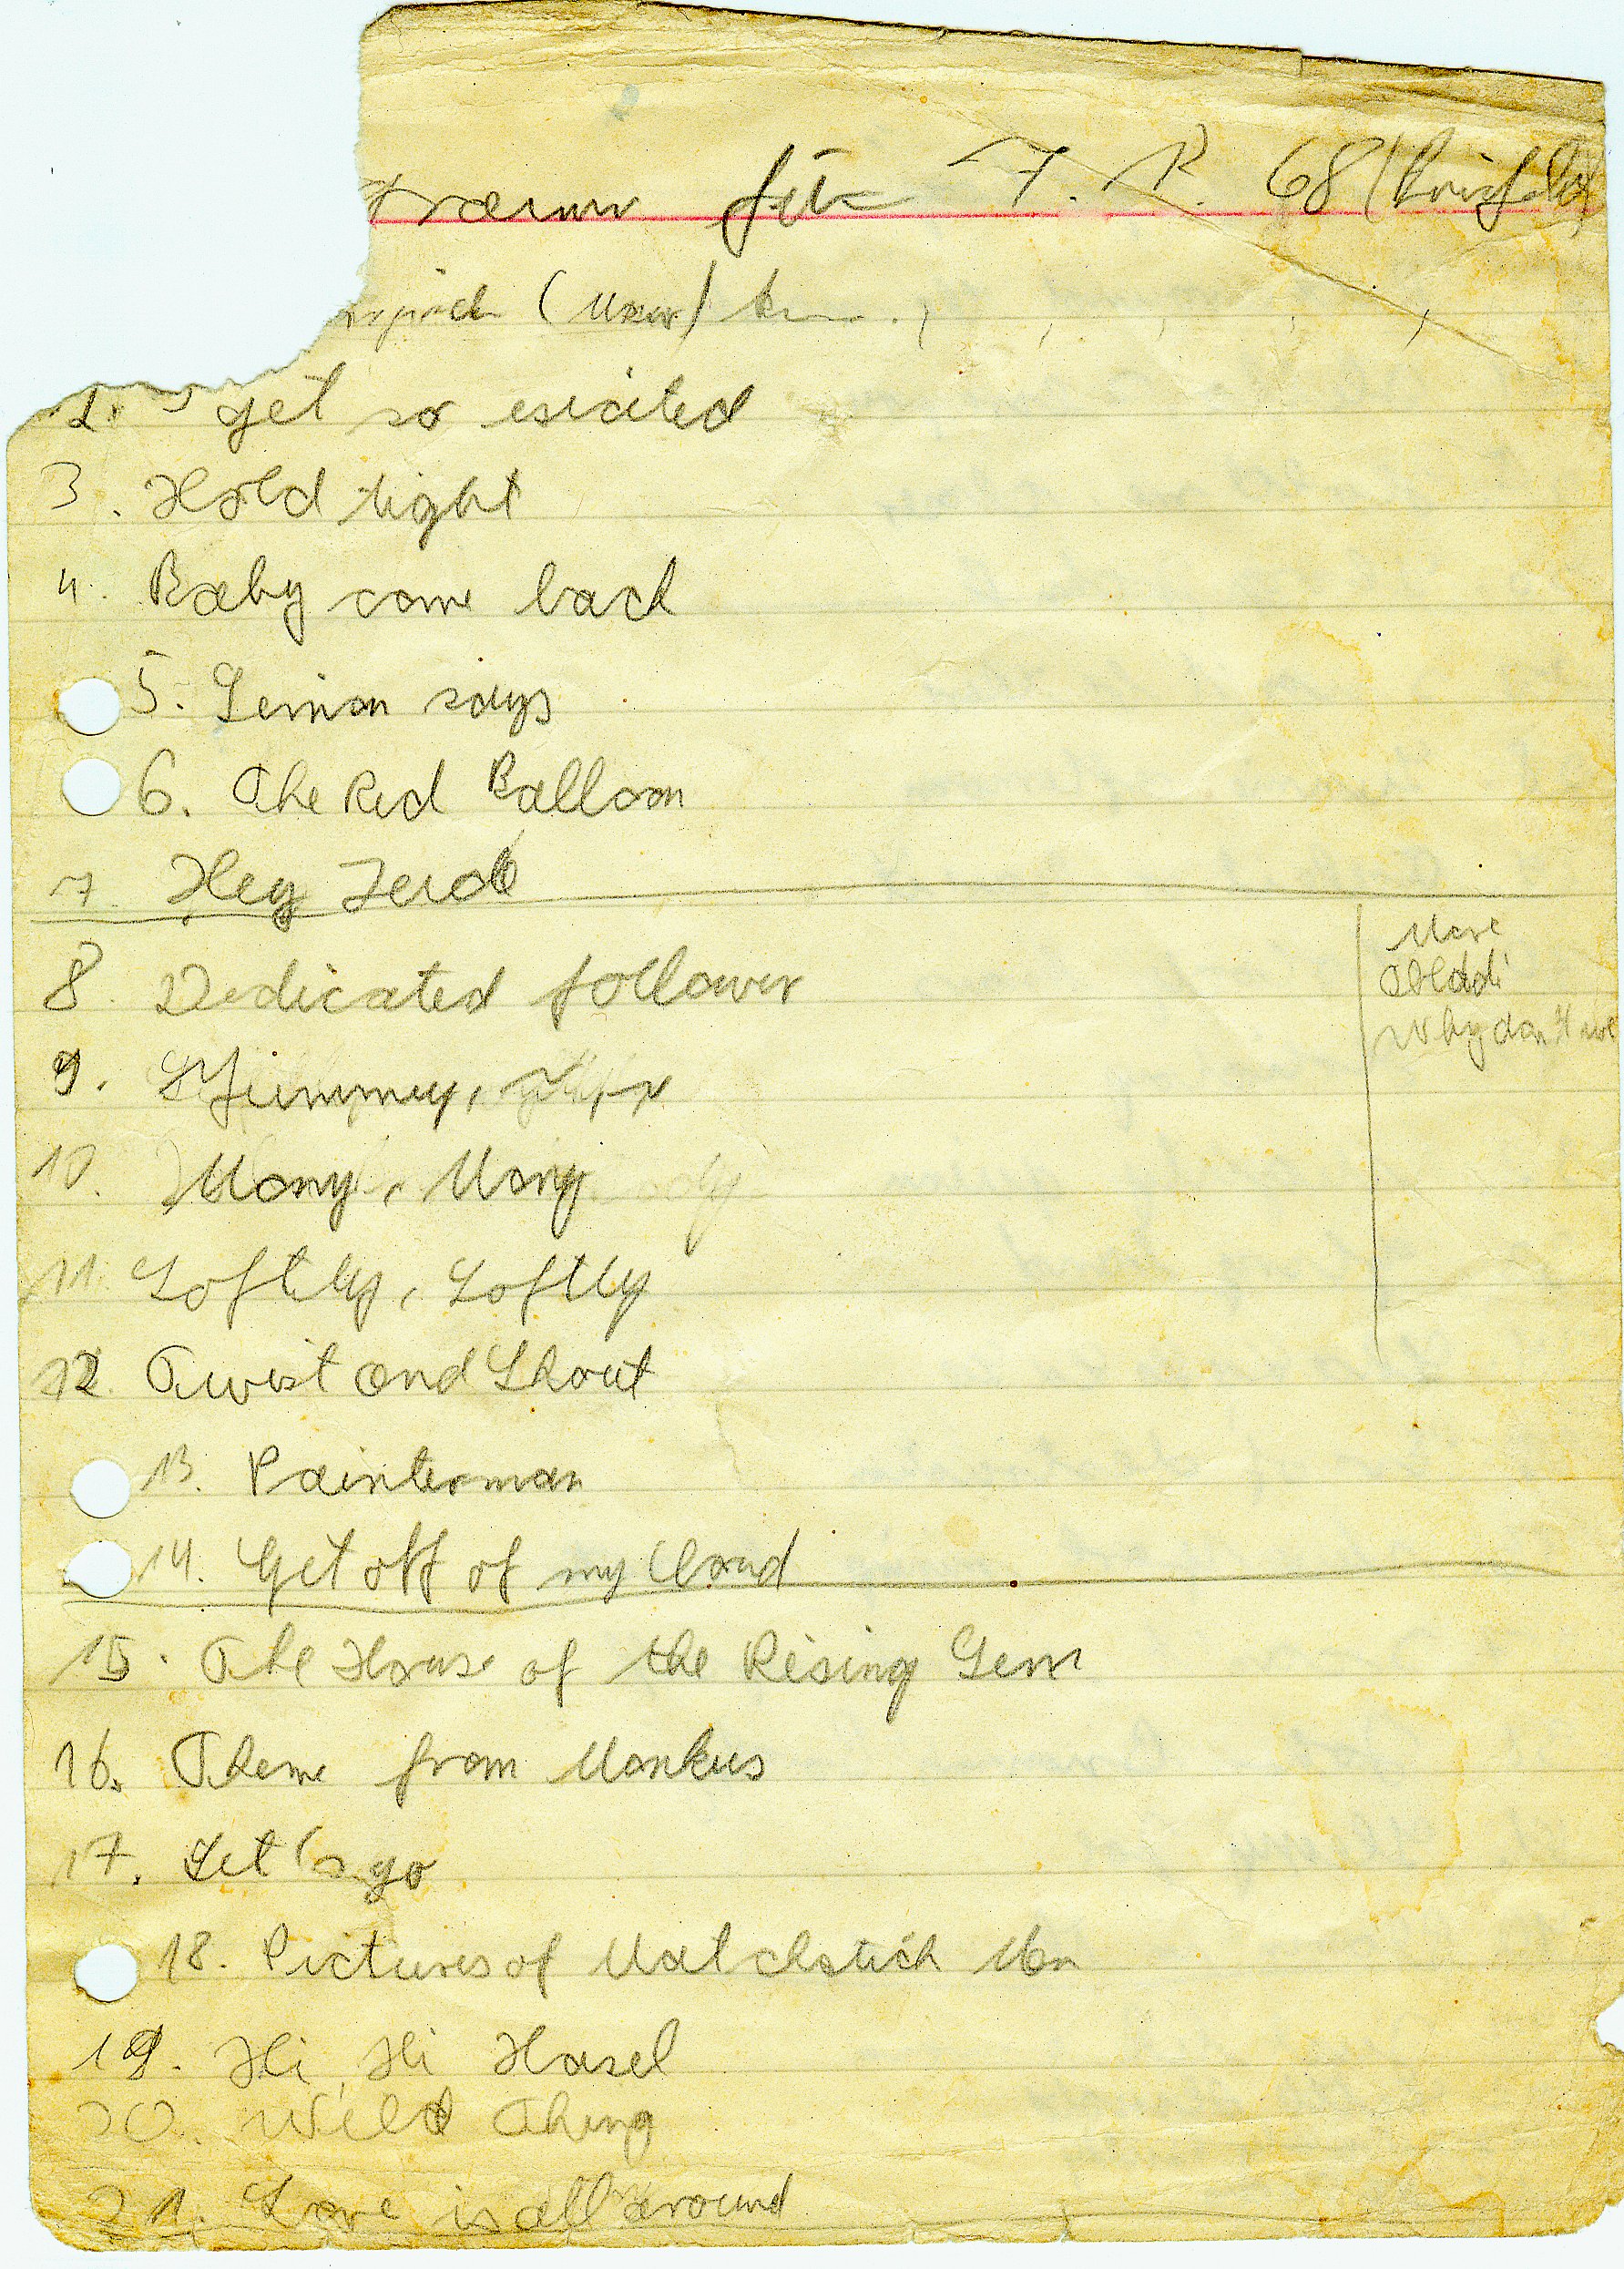 für 7. R. 68
2. I get so exicited
3. Hold tight
4. Baby come back
5. Semion says
6. The Red Balloon
7. Hey Jude
8. Dedicated follower
9. Yummy,
10. Mony, Mony
11. Softly, Softly
12. Twist and Shout
13. Painterman
14. Get off of my Cloud
15. The House of the Rising Senn
16. Theme from Monkees
17. Let's go
18. Pictures of Matchstick Men
19. Hi, Hi Hasel
20. Wild Thing
21. Love is all around
More
Obladi
Why don't